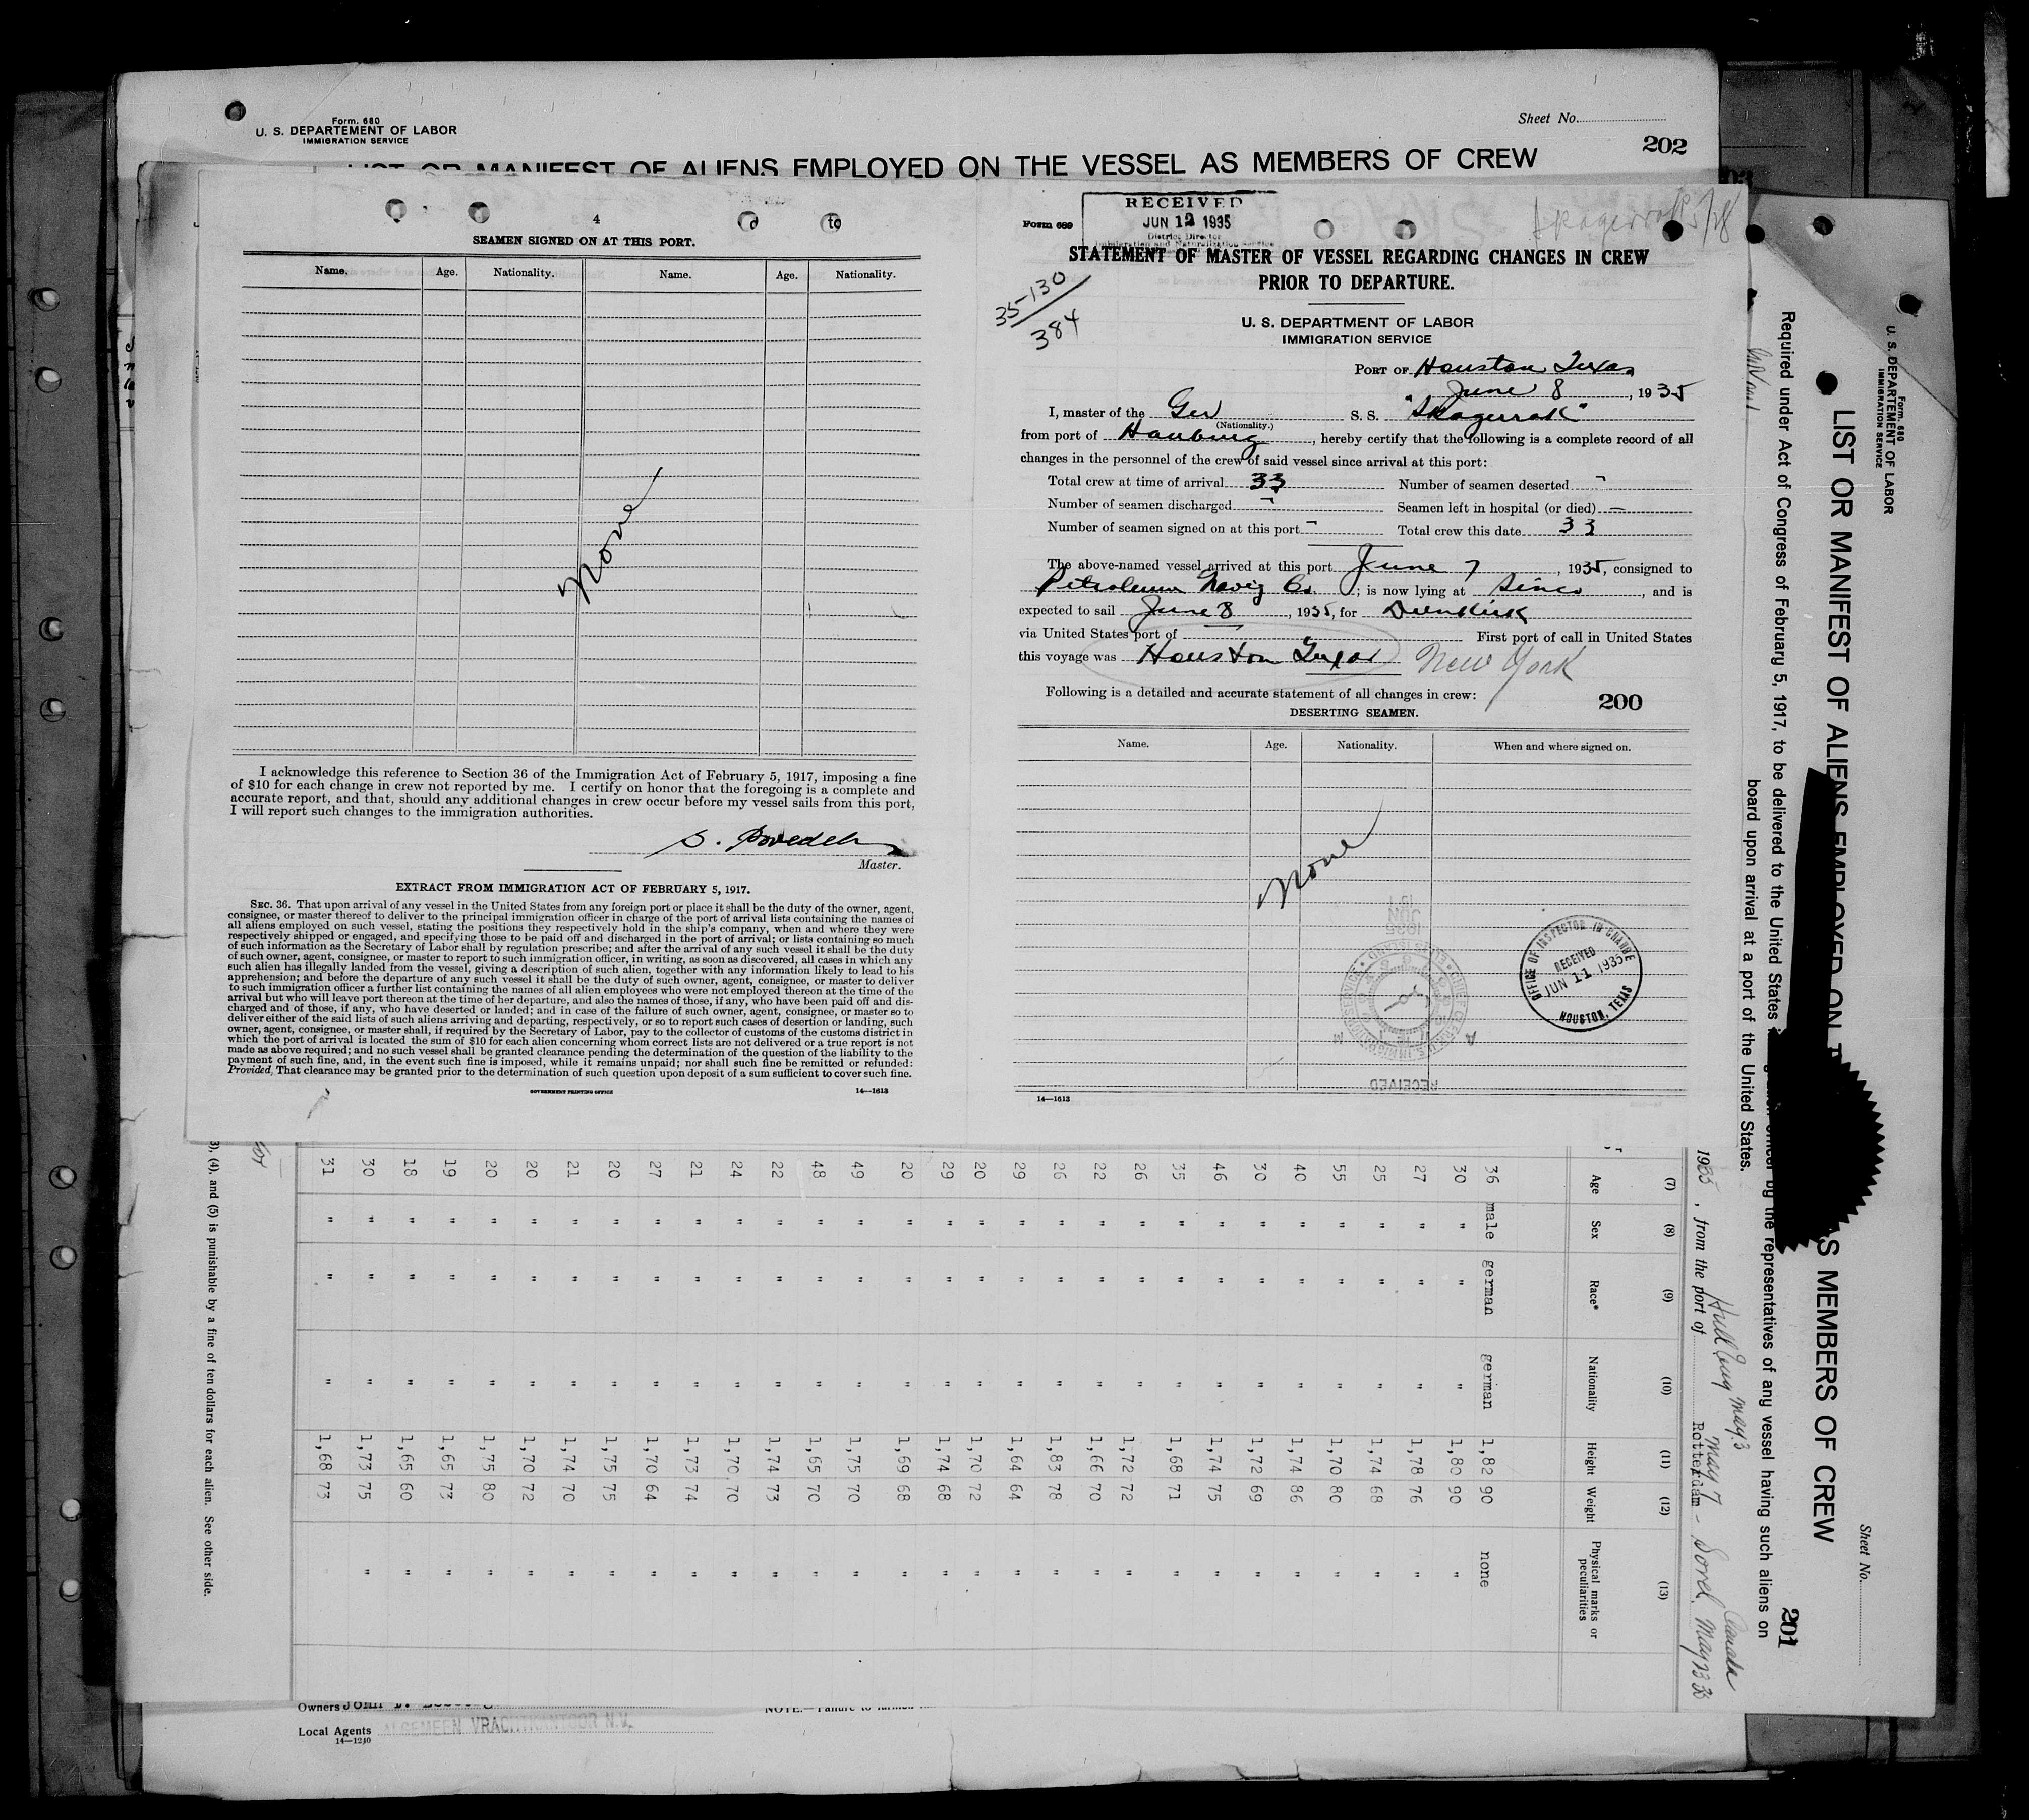 Form. 680
U. S. DEPARTEMENT OF LABOR
IMMIGRATION SERVICE
Sheet No.
202
LIST OR MANIFEST OF ALIENS EMPLOYED ON THE VESSEL AS MEMBERS OF CREW
4
SEAMEN SIGNED ON AT THIS PORT.
Name. Age. Nationality. Name. Age. Nationality.
None
I acknowledge this reference to Section 36 of the Immigration Act of February 5, 1917, imposing a fine
of $10 for each change in crew not reported by me. I certify on honor that the foregoing is a complete and
accurate report, and that, should any additional changes in crew occur before my vessel sails from this port,
I will report such changes to the immigration authorities.
Master.
EXTRACT FROM IMMIGRATION ACT OF FEBRUARY 5, 1917.
SEC. 36. That upon arrival of any vessel in the United States from any foreign port or place it shall be the duty of the owner, agent,
consignee, or master thereof to deliver to the principal immigration officer in charge of the port of arrival lists containing the names of
all aliens employed on such vessel, stating the positions they respectively hold in the ship's company, when and where they were
respectively shipped or engaged, and specifying those to be paid off and discharged in the port of arrival; or lists containing so much
of such information as the Secretary of Labor shall by regulation prescribe; and after the arrival of any such vessel it shall be the duty
of such owner, agent, consignee, or master to report to such immigration officer, in writing, as soon as discovered, all cases in which any
such alien has illegally landed from the vessel, giving a description of such alien, together with any information likely to lead to his
apprehension; and before the departure of any such vessel it shall be the duty of such owner, agent, consignee, or master to deliver
to such immigration officer a further list containing the names of all alien employees who were not employed thereon at the time of the
arrival but who will leave port thereon at the time of her departure, and also the names of those, if any, who have been paid off and dis-
charged and of those, if any, who have deserted or landed; and in case of the failure of such owner, agent, consignee, or master so to
deliver either of the said lists of such aliens arriving and departing, respectively, or so to report such cases of desertion or landing, such
owner, agent, consignee, or master shall, if required by the Secretary of Labor, pay to the collector of customs of the customs district in
which the port of arrival is located the sum of $10 for each alien concerning whom correct lists are not delivered or a true report is not
made as above required; and no such vessel shall be granted clearance pending the determination of the question of the liability to the
payment of such fine, and, in the event such fine is imposed, while it remains unpaid; nor shall such fine be remitted or refunded:
Provided, That clearance may be granted prior to the determination of such question upon deposit of a sum sufficient to cover such fine.
GOVERNMENT PRINTING OFFICE 14—1613
Form 689
RECEIVED
JUN 12 1935
District Director
Immigration and Naturalization Service
Skagerrak 5/28
STATEMENT OF MASTER OF VESSEL REGARDING CHANGES IN CREW
PRIOR TO DEPARTURE.
35-130
384
U. S. DEPARTMENT OF LABOR
IMMIGRATION SERVICE
PORT OF Houston Texas
June 8, 1935
I, master of the Ger S. S. "Skagerrak"
(Nationality.)
from port of Hamburg, hereby certify that the following is a complete record of all
changes in the personnel of the crew of said vessel since arrival at this port:
Total crew at time of arrival 33 Number of seamen deserted -
Number of seamen discharged - Seamen left in hospital (or died) —
Number of seamen signed on at this port - Total crew this date 33
The above-named vessel arrived at this port June 7, 1935, consigned to
Petroleum Navig Co.; is now lying at Sinco, and is
expected to sail June 8, 1935, for Dunkirk
via United States port of First port of call in United States
this voyage was Houston Texas New York
Following is a detailed and accurate statement of all changes in crew:
200
DESERTING SEAMEN.
Name. Age. Nationality. When and where signed on.
None
OFFICE OF INSPECTOR IN CHARGE
RECEIVED
JUN 11 1935
HOUSTON, TEXAS
RECEIVED
14—1613
Form. 680
U. S. DEPARTEMENT OF LABOR
IMMIGRATION SERVICE
Sheet No.
LIST OR MANIFEST OF ALIENS EMPLOYED ON T AS MEMBERS OF CREW
201
Required under Act of Congress of February 5, 1917, to be delivered to the United States by the representatives of any vessel having such aliens on
board upon arrival at a port of the United States.
Hull Eng May 3
Canada
May 7 - Sorel, May 23 35
1935, from the port of Rotterdam
(7) (8) (9) (10) (11) (12) (13)
Age Sex Race* Nationality Height Weight Physical marks or peculiarities
36 male german german 1,82 90 none
30 " " " 1,80 90 "
27 " " " 1,78 76 "
25 " " " 1,74 68 "
55 " " " 1,70 80 "
40 " " " 1,74 86 "
30 " " " 1,72 69 "
46 " " " 1,74 75 "
35 " " " 1,68 71 "
26 " " " 1,72 72 "
22 " " " 1,66 70 "
26 " " " 1,83 78 "
29 " " " 1,64 64 "
20 " " " 1,70 72 "
29 " " " 1,74 68 "
20 " " " 1,69 68 "
49 " " " 1,75 70 "
48 " " " 1,65 70 "
22 " " " 1,74 73 "
24 " " " 1,70 70 "
21 " " " 1,73 74 "
27 " " " 1,70 64 "
20 " " " 1,75 75 "
21 " " " 1,74 70 "
20 " " " 1,70 72 "
20 " " " 1,75 80 "
19 " " " 1,65 73 "
18 " " " 1,65 60 "
30 " " " 1,73 75 "
31 " " " 1,68 73
3), (4), and (5) is punishable by a fine of ten dollars for each alien. See other side.
Owners John
NOTE.—Failure to
Local Agents ALGEMEEN VRACHTKANTOOR N.V.
14—1240